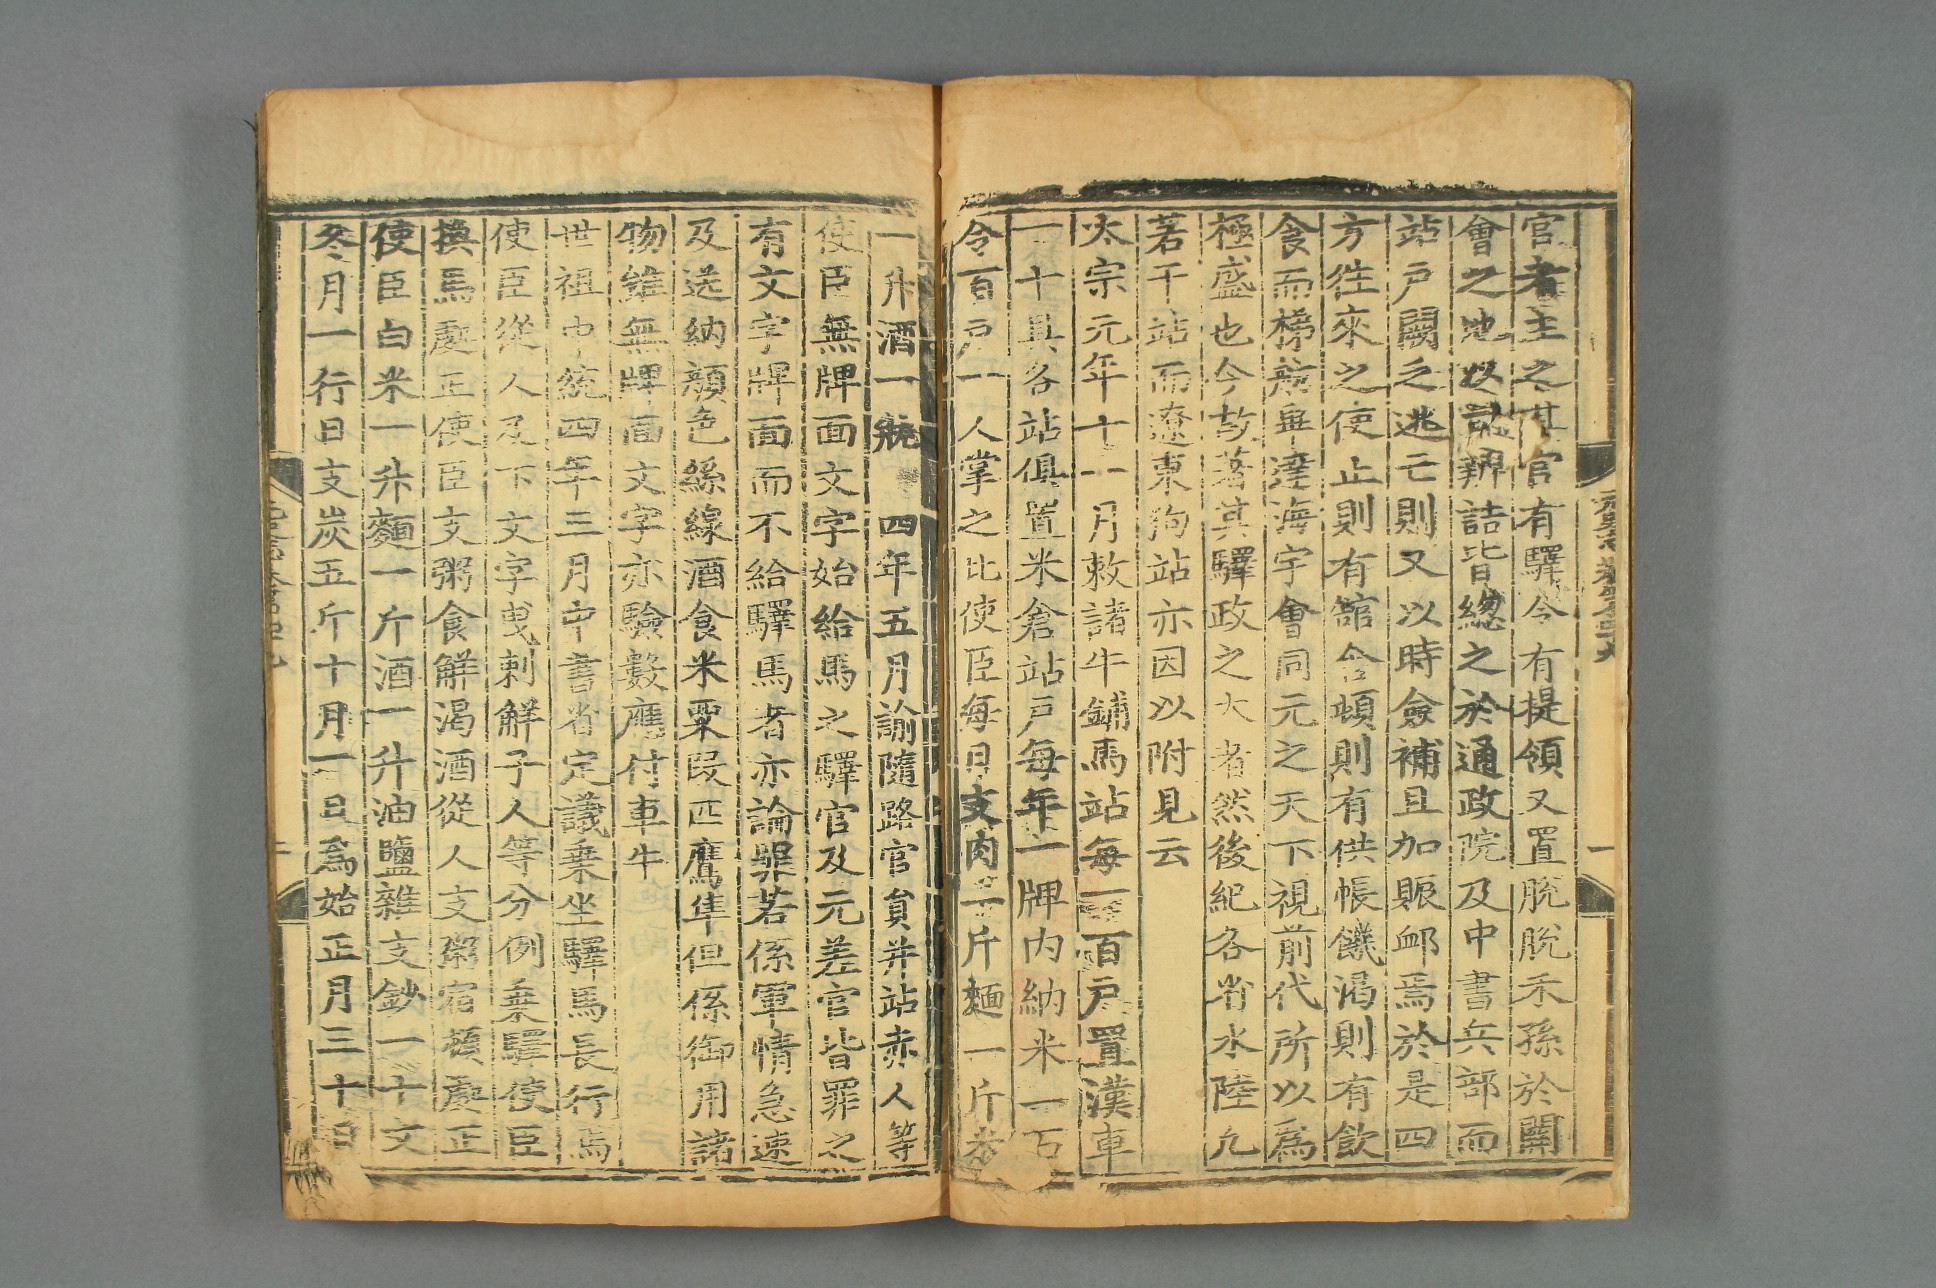 官者主之其官有驛令有提領又置脫脫禾孫於關
會之地以司辨詰皆緫之於通政院及中書兵部而
站戸闕乏逃亡則又以時僉補且加賑䘏焉於是四
方徃來之使止則有舘舍頓則有供帳饑渴則有飲
食而梯航畢達海宇會同元之天下視前代所以爲
極盛也今故著其驛政之大者然後紀各省水陸凢
若干站而遼東狗站亦因以附見云
太宗元年十一月敕諸牛鋪馬站每一百戸置漢車
一十具各站俱置米倉站戸每年一牌内納米一石
令百戸一人掌之比使臣每日支肉一斤麵一斤米
一升酒一缾　四年五月諭隨路官員并站赤人等
使臣無牌面文字始給馬之驛官及元差官皆罪之
有文字牌面而不給驛馬者亦論罪若係軍情急速
及送納顔色絲線酒食米粟段匹鷹隼但係御用諸
物雖無牌面文字亦驗數應付車牛
世祖中統四年三月中書省定議乗坐驛馬長行馬
使臣從人及下文字曵剌解子人等分例乗驛使臣
換馬處正使臣支粥食解渴酒從人支粥宿頓處正
使臣白米一升麵一斤酒一升油鹽雜支鈔一十文
冬月一行日支炭五斤十月一日爲始正月三十日